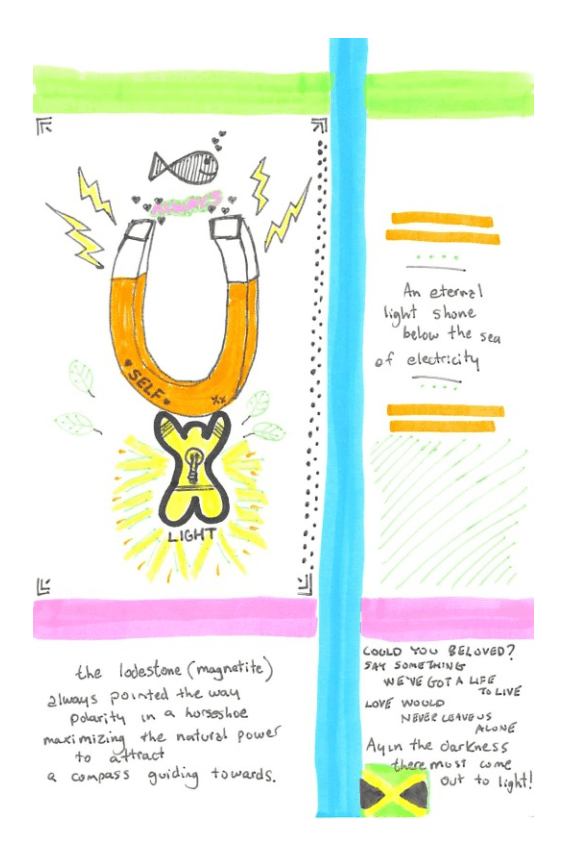 ALWAYS
SELF
xx
LIGHT
An eternal
light shone
below the sea
of electricity
the lodestone (magnetite)
always pointed the way
polarity in a horseshoe
maximizing the natural power
to attract
a compass guiding towards.
COULD YOU BELOVED?
SAY SOMETHING
WE'VE GOT A LIFE
TO LIVE
LOVE WOULD
NEVER LEAVE US
ALONE
Ay in the darkness
there must come
out to light!